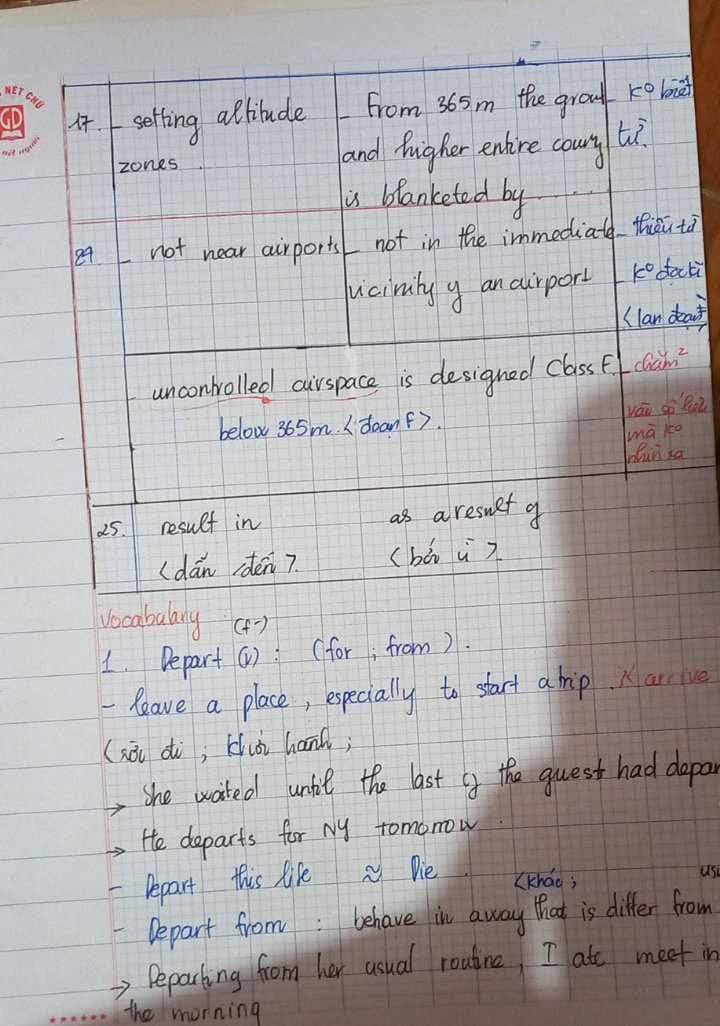 NET CHỮ
GD
17. - setting altitude - From 365m the grou - ko biết
zones. and higher entire coury từ.
is blanketed by......
- not near airports - not in the immediate - thiếu từ
vicinity of an airport - ko đọc kĩ
uncontrolled airspace is designed Class F. - chăm²
below 365m. <đoạn F>.
mà ko
25. result in as a result of
<dẫn đến>. <bởi vì>.
Vocabulary
1. Depart (v): (for, from).
- leave a place, especially to start a trip. X arrive
(rời đi; khởi hành;
→ She waited until the last of the guest had depar
→ He departs for NY tomorrow.
- Depart this life ≈ Die.
<khác;
- Depart from: behave in away that is differ from
→ Departing from her usual routine, I ate meet in
the morning